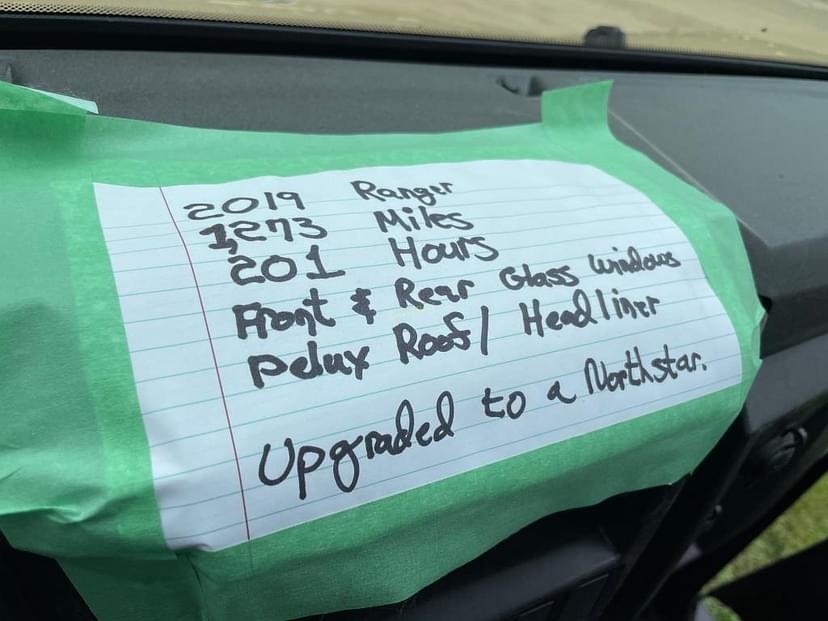 2019 Ranger
1,273 Miles
201 Hours
Front & Rear Glass windows
Delux Roof/ Headliner
Upgraded to a Northstar.